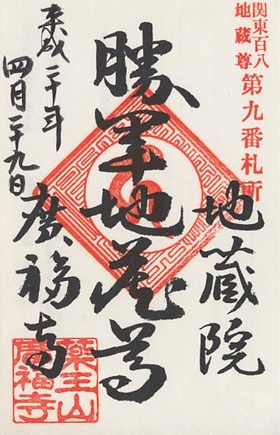 関東百八
地蔵尊
第九番札所
地蔵院
勝軍地蔵尊
廣福寺
平成二十年
四月二十九日
薬王山
廣福寺